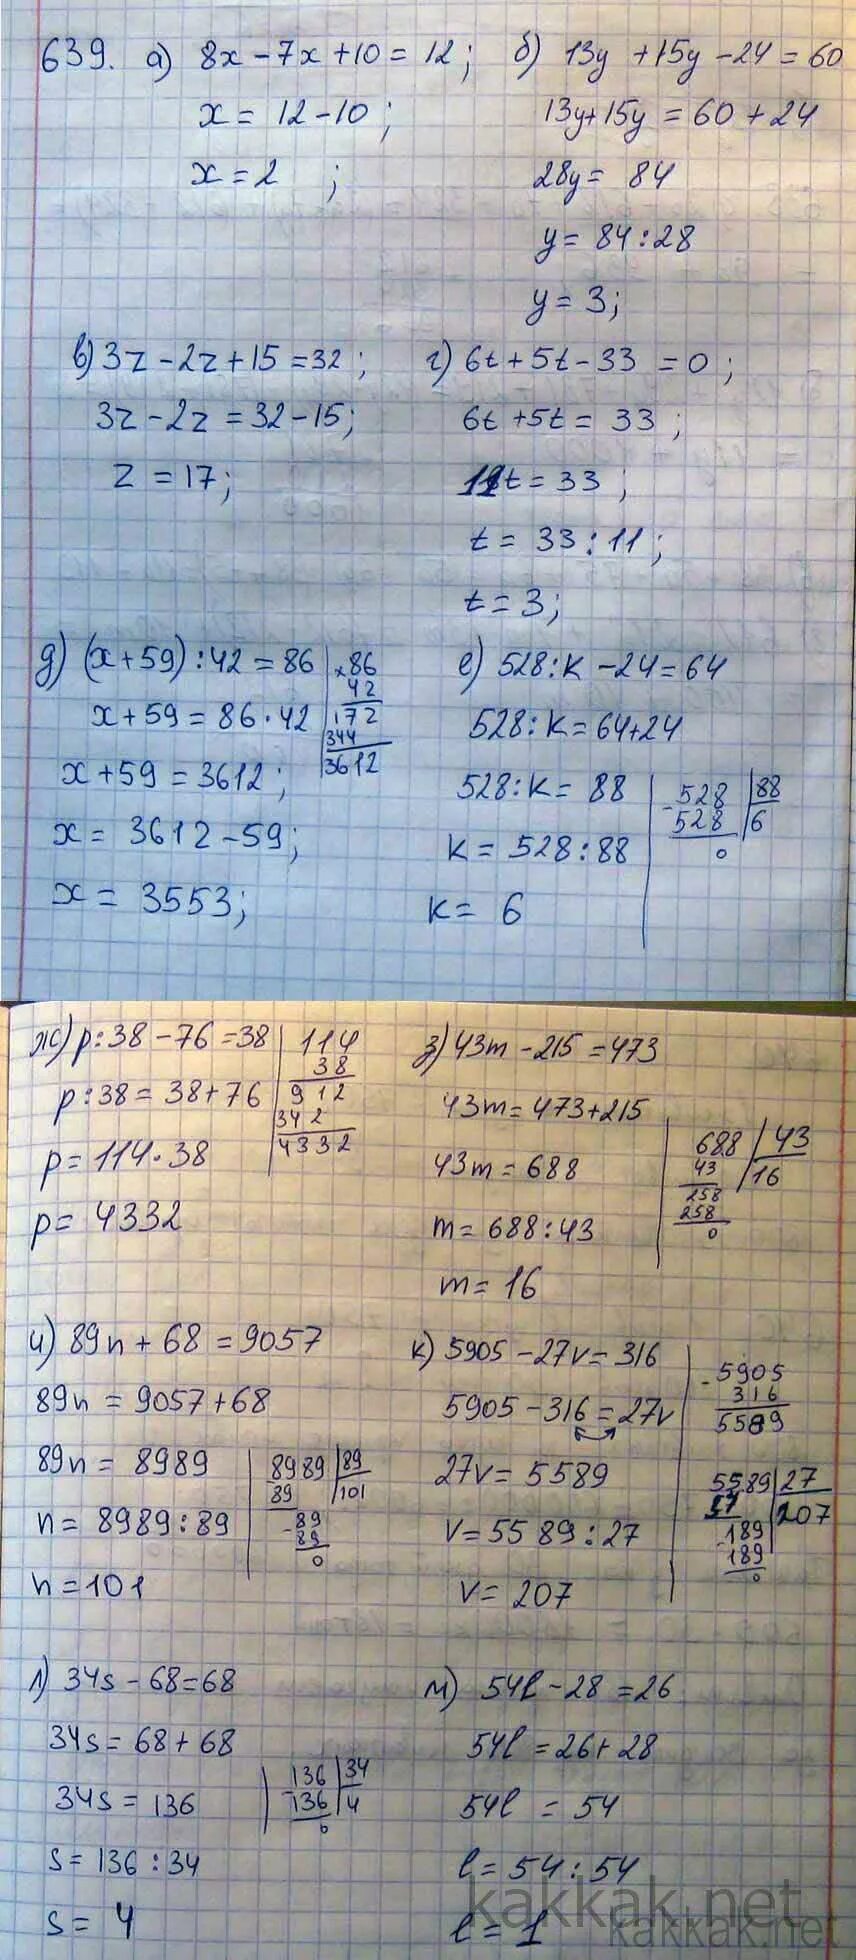 639. а) 8x - 7x + 10 = 12;
x = 12 - 10;
x = 2 ;
б) 13y + 15y - 24 = 60
13y + 15y = 60 + 24
28y = 84
y = 84 : 28
y = 3;
в) 3z - 2z + 15 = 32;
3z - 2z = 32 - 15;
z = 17;
г) 6t + 5t - 33 = 0;
6t + 5t = 33;
11t = 33;
t = 33 : 11;
t = 3;
д) (x + 59) : 42 = 86
x + 59 = 86 · 42
x + 59 = 3612;
x = 3612 - 59;
x = 3553;
× 86
42
172
344
3612
е) 528 : k - 24 = 64
528 : k = 64 + 24
528 : k = 88
k = 528 : 88
k = 6
- 528 88
528 6
0
ж) p : 38 - 76 = 38
p : 38 = 38 + 76
p = 114 · 38
p = 4332
114
38
912
342
4332
з) 43m - 215 = 473
43m = 473 + 215
43m = 688
m = 688 : 43
m = 16
688 43
43 16
258
258
0
и) 89n + 68 = 9057
89n = 9057 + 68
89n = 8989
n = 8989 : 89
n = 101
8989 89
89 101
- 89
89
0
к) 5905 - 27v = 316
5905 - 316 = 27v
27v = 5589
v = 5589 : 27
v = 207
- 5905
316
5589
5589 27
54 207
- 189
189
0
л) 34s - 68 = 68
34s = 68 + 68
34s = 136
s = 136 : 34
s = 4
- 136 34
136 4
0
м) 54l - 28 = 26
54l = 26 + 28
54l = 54
l = 54 : 54
l = 1
kakkak.net
kakkak.net